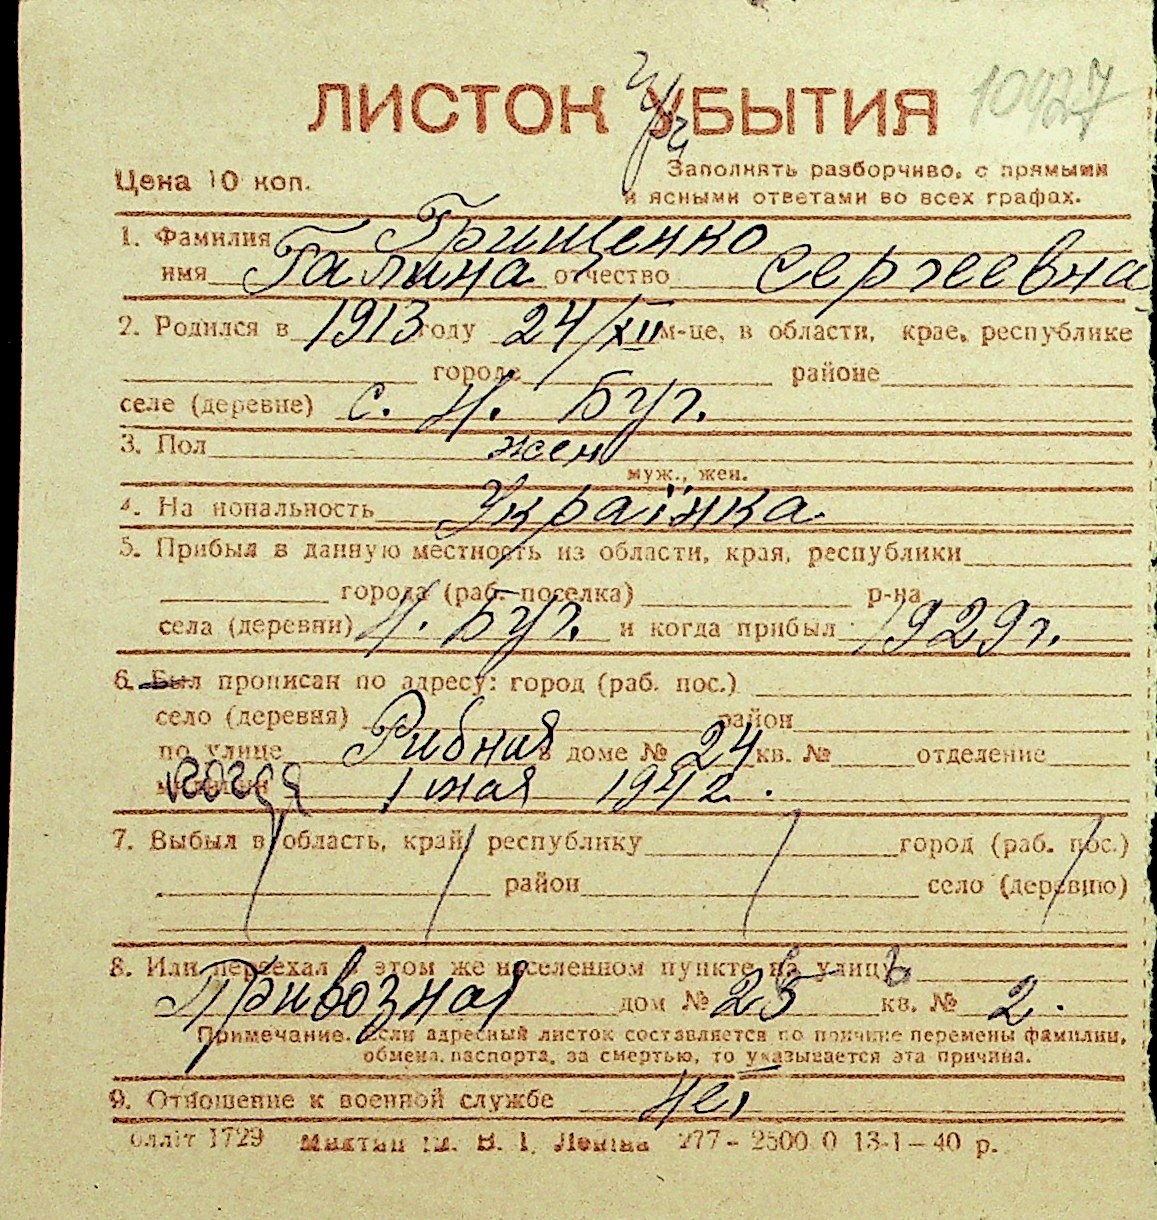 10127
ЛИСТОК УБЫТИЯ
Цена 10 коп.
Заполнять разборчиво, с прямыми
и ясными ответами во всех графах.
1. Фамилия Грищенко
имя Галина отчество Сергеевна
2. Родился в 1913 году 24/XII м-це, в области, крае, республике
городе районе
селе (деревне) с. Н. Буг.
3. Пол жен
муж., жен.
4. На иональность Українка
5. Прибыл в данную местность из области, края, республики
города (раб. поселка) р-на
села (деревни) Н. Буг. и когда прибыл 1929 г.
6. Был прописан по адресу: город (раб. пос.)
село (деревня) район
по улице Рибная в доме № 24 кв. № отделение
когда 1 мая 1942.
7. Выбыл в область, край, республику город (раб. пос.)
район село (деревню)
8. Или переехал в этом же населенном пункте на улицу
Привозная дом № 25 кв. № 2.
Примечание. Если адресный листок составляется по причине перемены фамилии,
обмена паспорта, за смертью, то указывается эта причина.
9. Отношение к военной службе нет
олліт 1729 277 - 2500 0 13-1-40 р.